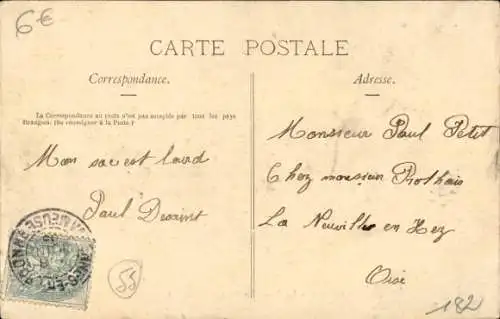 6€
CARTE POSTALE
Correspondance.
Adresse.
La Correspondance au recto n'est pas acceptée par tous les pays
étrangers. (Se renseigner à la Poste.)
Mon sac est lourd
Paul
Monsieur Paul Petit
Chez monsieur Rothais
La Neuville en Hez
Oise
55
182